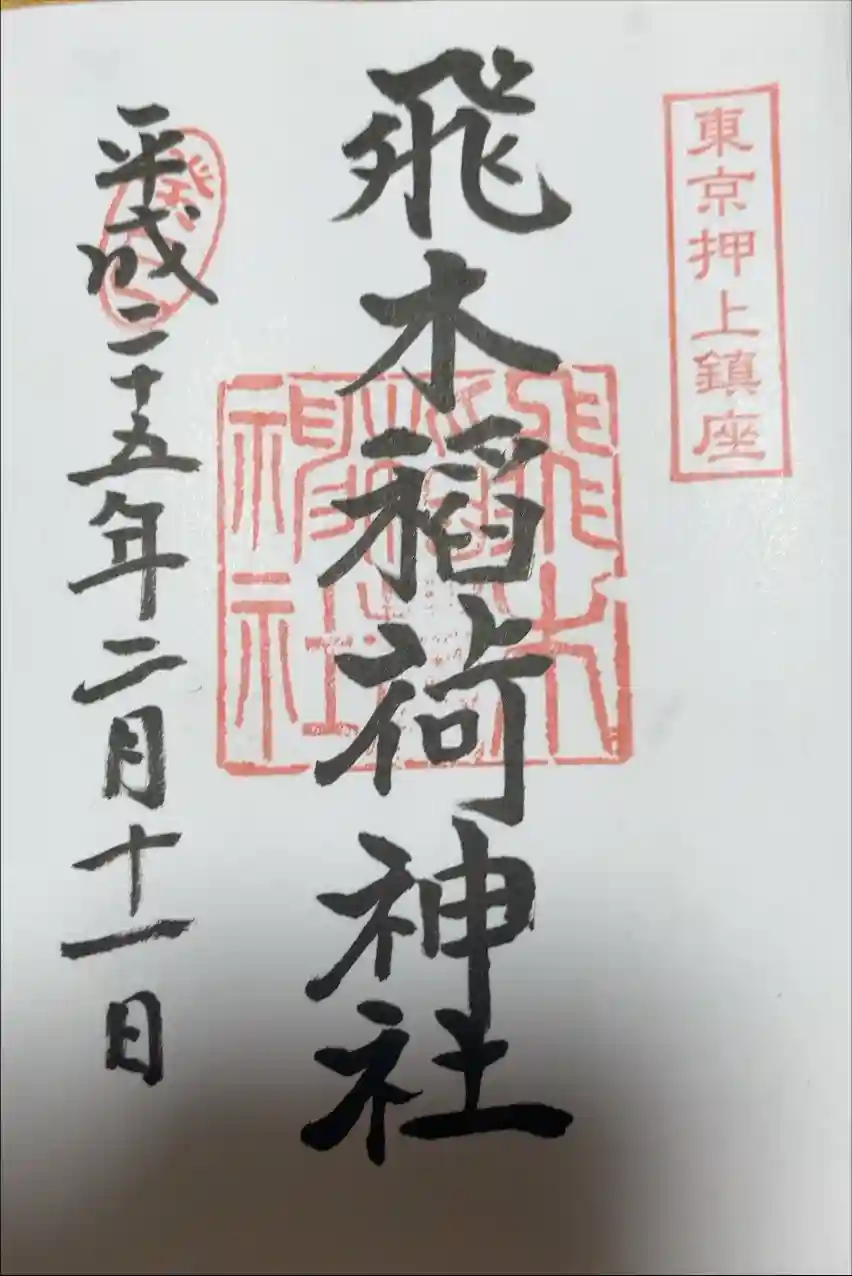 東京押上鎮座
飛木稲荷神社
平成二十五年二月十一日
飛木
稲荷
神社